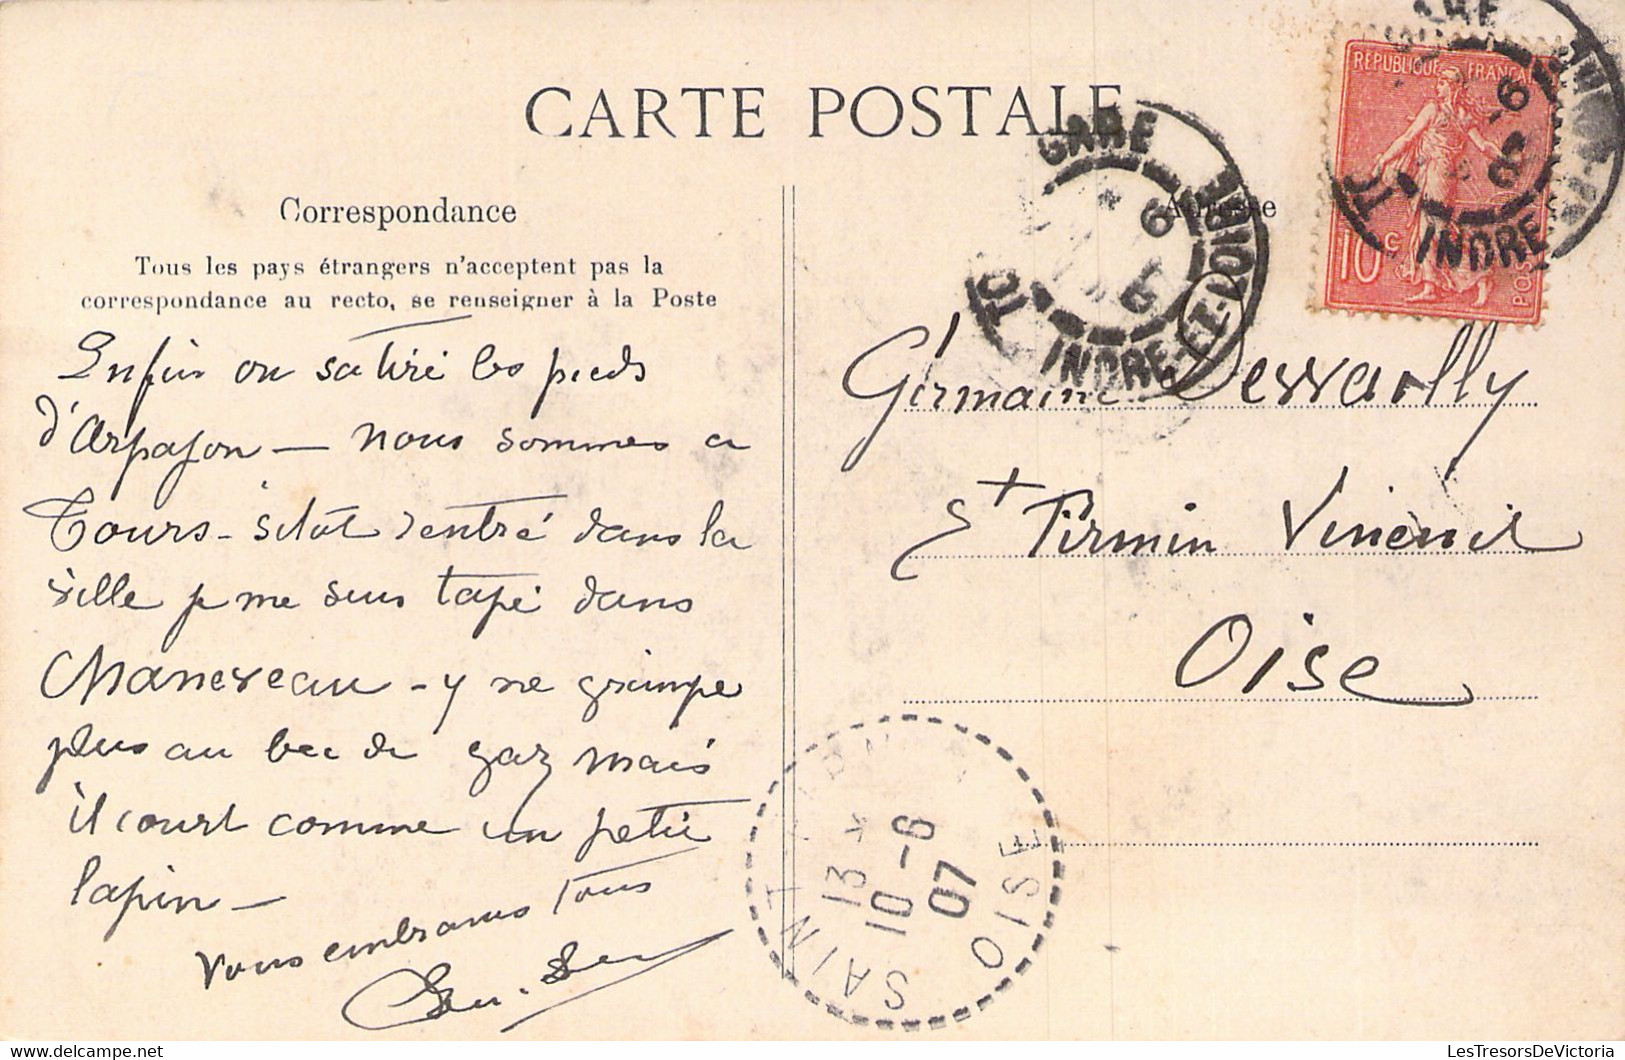 CARTE POSTALE
Correspondance
Tous les pays étrangers n'acceptent pas la
correspondance au recto, se renseigner à la Poste
Enfin on s'atiré les pieds
d'Arpajon — nous sommes a
Tours - sitôt rentré dans la
ville je me suis tapé dans
- y ne grimpe
plus au bec de gaz mais
il court comme un petit
lapin —
Vous embrassons tous
Adresse
Germaine Dervailly
St Firmin Vineuil
Oise
REPUBLIQUE FRANÇAISE
10c
POSTES
GARE
INDRE-ET-LOIRE
GARE
INDRE
SAINT
OISE
13 *
10-6
07
LesTresorsDeVictoria